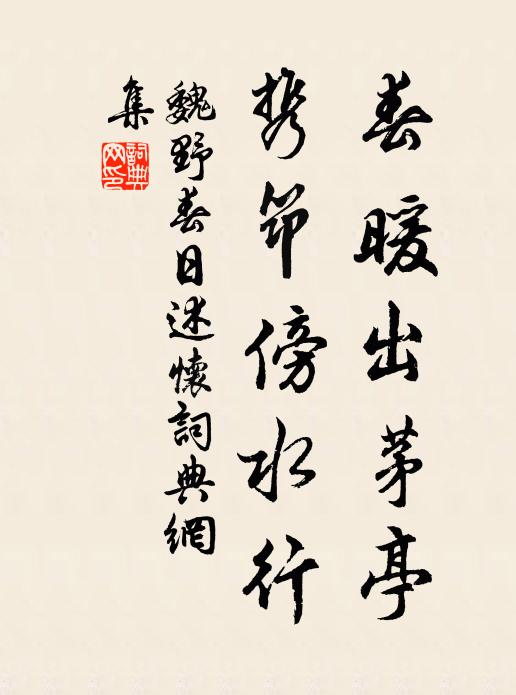 春暖出茅亭
携筇傍水行
魏野春日述懷詞典網
集
詞典
網印